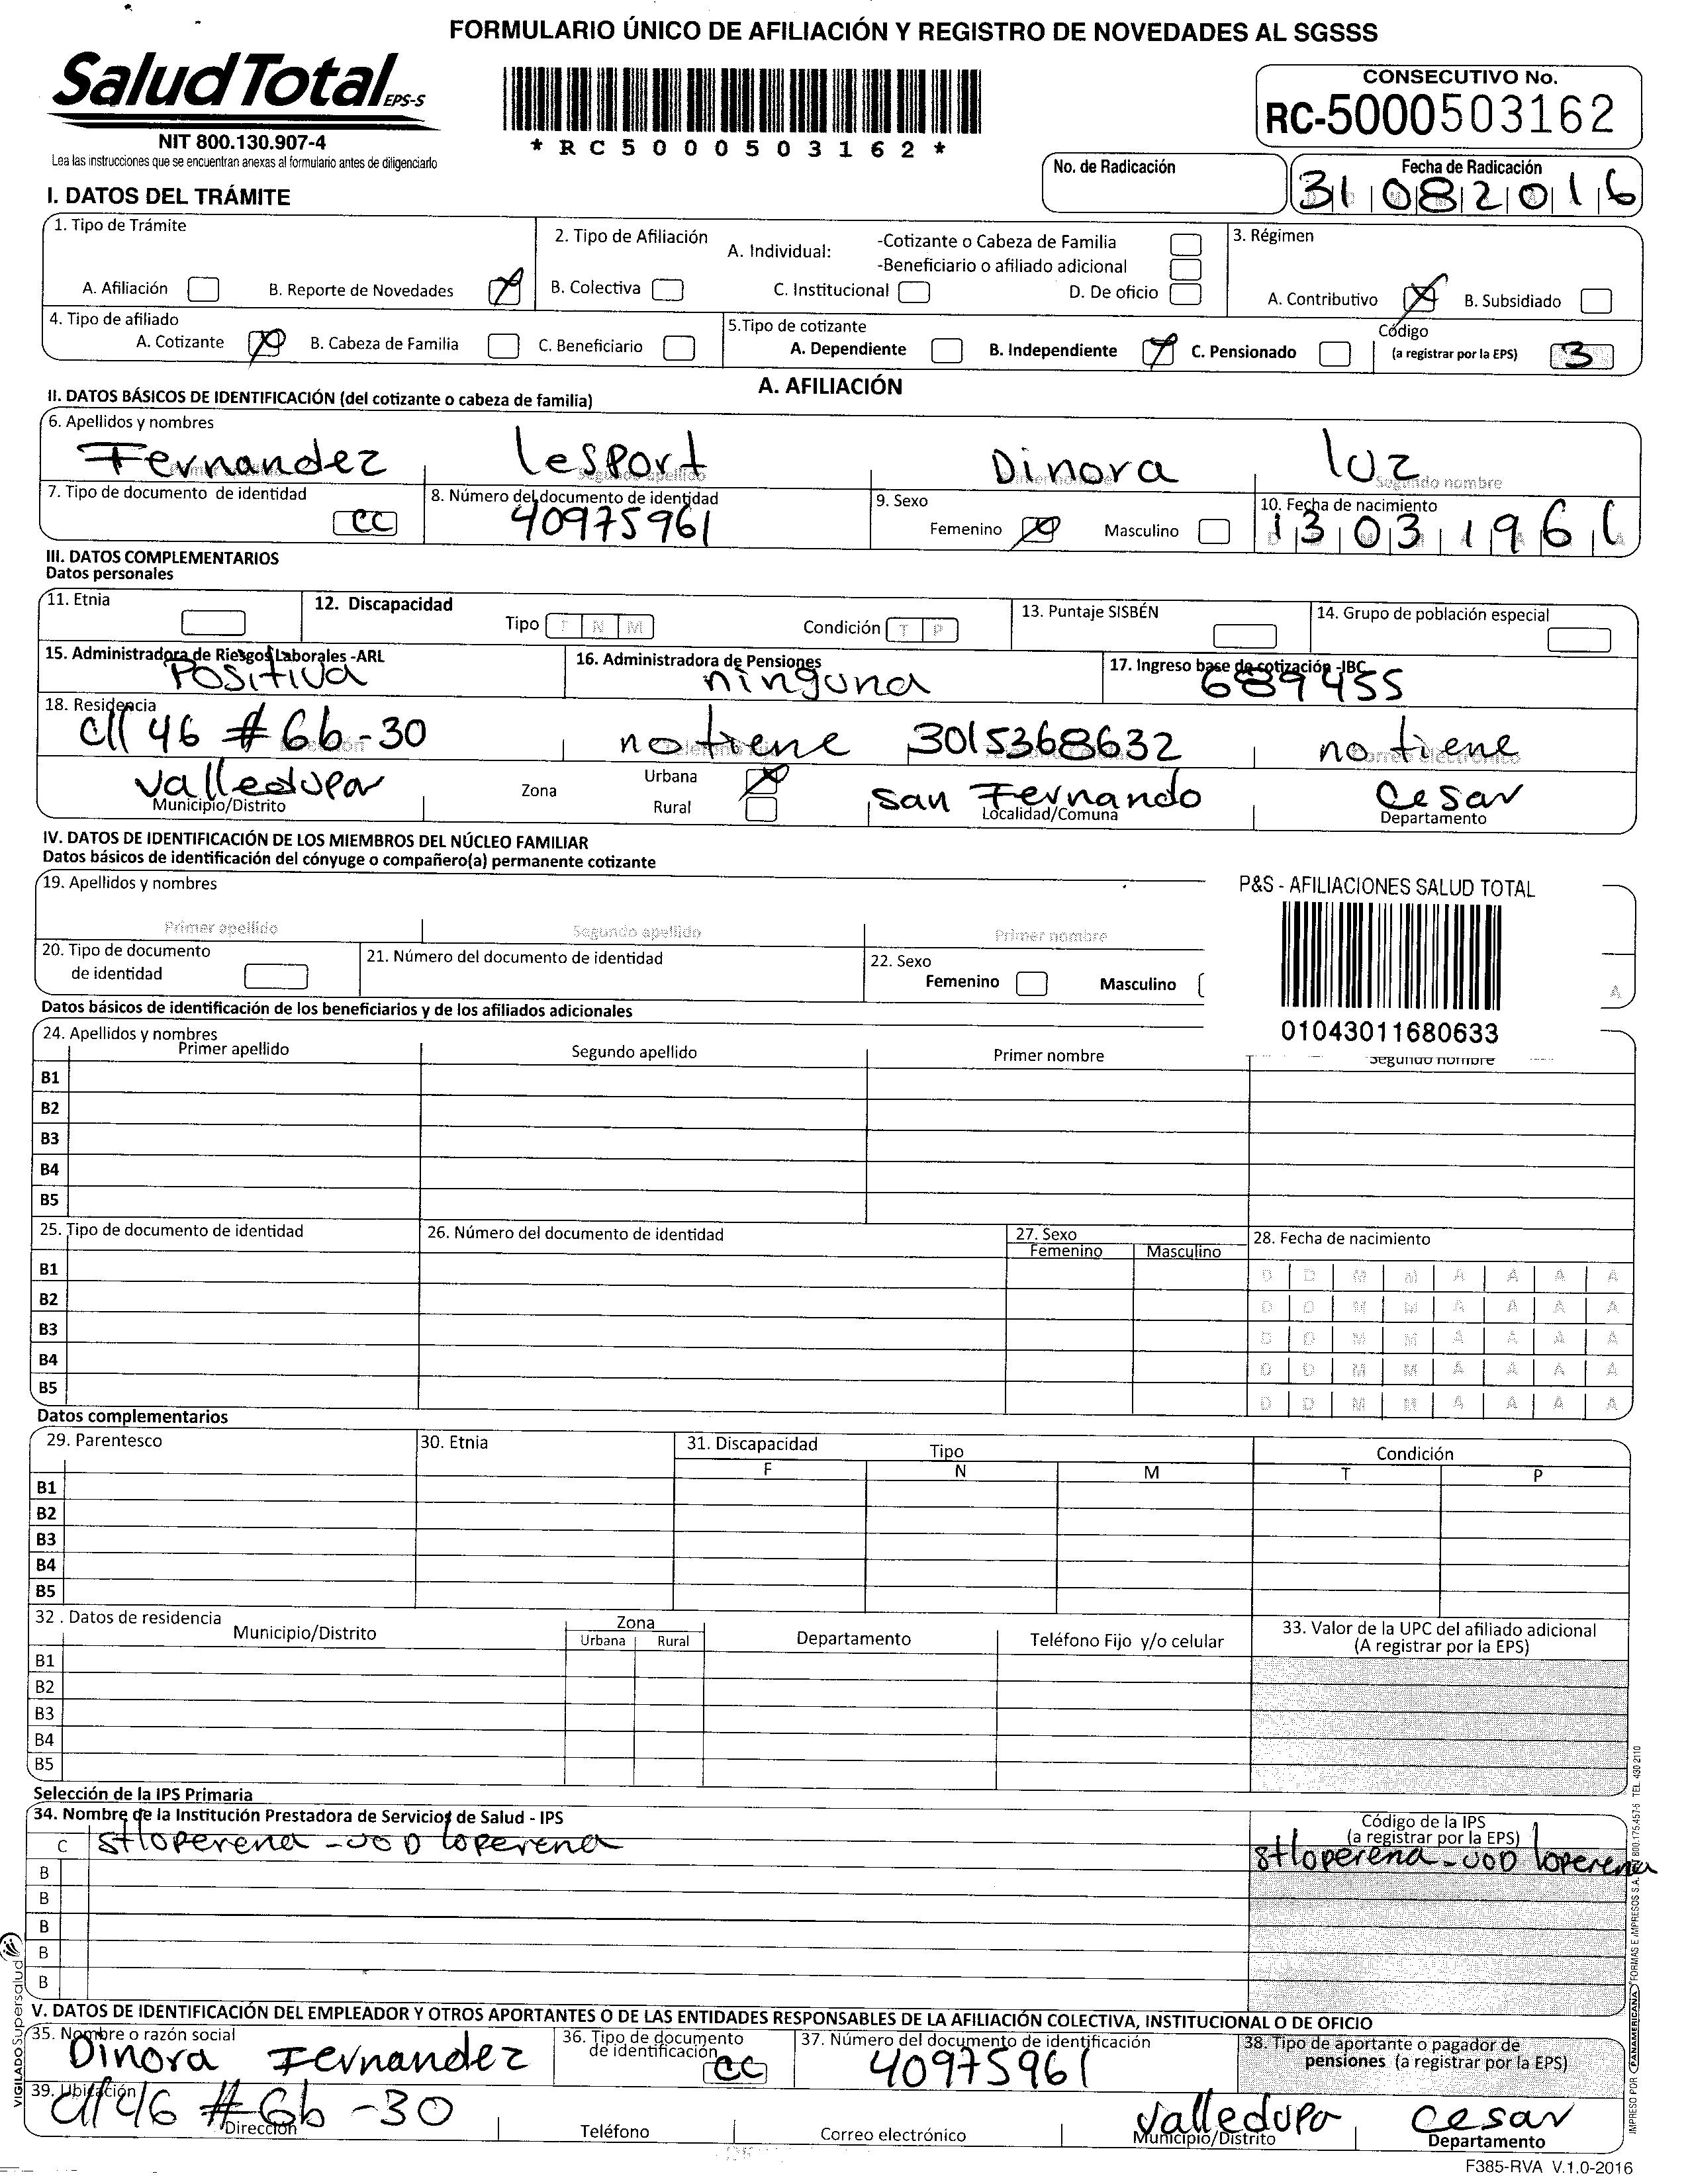 FORMULARIO ÚNICO DE AFILIACIÓN Y REGISTRO DE NOVEDADES AL SGSSS
SaludTotal EPS-S
NIT 800.130.907-4
Lea las instrucciones que se encuentran anexas al formulario antes de diligenciarlo
*RC5000503162*
CONSECUTIVO No.
RC-5000503162
No. de Radicación
Fecha de Radicación
31 08 2016
I. DATOS DEL TRÁMITE
1. Tipo de Trámite
A. Afiliación B. Reporte de Novedades X
2. Tipo de Afiliación A. Individual: -Cotizante o Cabeza de Familia
-Beneficiario o afiliado adicional
B. Colectiva C. Institucional D. De oficio
3. Régimen
A. Contributivo X B. Subsidiado
4. Tipo de afiliado
A. Cotizante X B. Cabeza de Familia C. Beneficiario
5.Tipo de cotizante
A. Dependiente B. Independiente X C. Pensionado
Código
(a registrar por la EPS) 3
A. AFILIACIÓN
II. DATOS BÁSICOS DE IDENTIFICACIÓN (del cotizante o cabeza de familia)
6. Apellidos y nombres
Fernandez lesport Dinora luz
Segundo apellido Segundo nombre
7. Tipo de documento de identidad CC
8. Número del documento de identidad
40975961
9. Sexo
Femenino X Masculino
10. Fecha de nacimiento
13 03 196
III. DATOS COMPLEMENTARIOS
Datos personales
11. Etnia
12. Discapacidad
Tipo F N M Condición T P
13. Puntaje SISBÉN
14. Grupo de población especial
15. Administradora de Riesgos Laborales -ARL
Positiva
16. Administradora de Pensiones
ninguna
17. Ingreso base de cotización -IBC
689455
18. Residencia
cll 46 # 6b-30 no tiene 3015368632 no tiene
Correo electrónico
valledupar
Municipio/Distrito
Zona Urbana X
Rural
San Fernando
Localidad/Comuna
Cesar
Departamento
IV. DATOS DE IDENTIFICACIÓN DE LOS MIEMBROS DEL NÚCLEO FAMILIAR
Datos básicos de identificación del cónyuge o compañero(a) permanente cotizante
19. Apellidos y nombres
Primer apellido Segundo apellido Primer nombre
20. Tipo de documento
de identidad
21. Número del documento de identidad
22. Sexo
Femenino Masculino
A
P&S - AFILIACIONES SALUD TOTAL
01043011680633
Datos básicos de identificación de los beneficiarios y de los afiliados adicionales
24. Apellidos y nombres
Primer apellido Segundo apellido Primer nombre Segundo nombre
B1
B2
B3
B4
B5
25. Tipo de documento de identidad 26. Número del documento de identidad 27. Sexo 28. Fecha de nacimiento
Femenino Masculino
B1 D D M M A A A A
B2 D D M M A A A A
B3 D D M M A A A A
B4 D D M M A A A A
B5 D D M M A A A A
Datos complementarios
29. Parentesco 30. Etnia 31. Discapacidad Tipo Condición
F N M T P
B1
B2
B3
B4
B5
32 . Datos de residencia
Municipio/Distrito Zona Departamento Teléfono Fijo y/o celular
Urbana Rural
33. Valor de la UPC del afiliado adicional
(A registrar por la EPS)
B1
B2
B3
B4
B5
Selección de la IPS Primaria
34. Nombre de la Institución Prestadora de Servicios de Salud - IPS
Código de la IPS
(a registrar por la EPS)
C stloperena - UOD loperena stloperena - UOD loperena
B
B
B
B
B
V. DATOS DE IDENTIFICACIÓN DEL EMPLEADOR Y OTROS APORTANTES O DE LAS ENTIDADES RESPONSABLES DE LA AFILIACIÓN COLECTIVA, INSTITUCIONAL O DE OFICIO
35. Nombre o razón social
Dinora Fernandez
36. Tipo de documento
de identificación CC
37. Número del documento de identificación
40975961
38. Tipo de aportante o pagador de
pensiones (a registrar por la EPS)
39. Ubicación
cll 46 # 6b -30 valledupa cesar
Dirección Teléfono Correo electrónico Municipio/Distrito Departamento
F385-RVA V.1.0-2016
VIGILADO Supersalud
IMPRESO POR PANAMERICANA FORMAS E IMPRESOS S.A. NIT 800.175.457-5 TEL. 430 2110